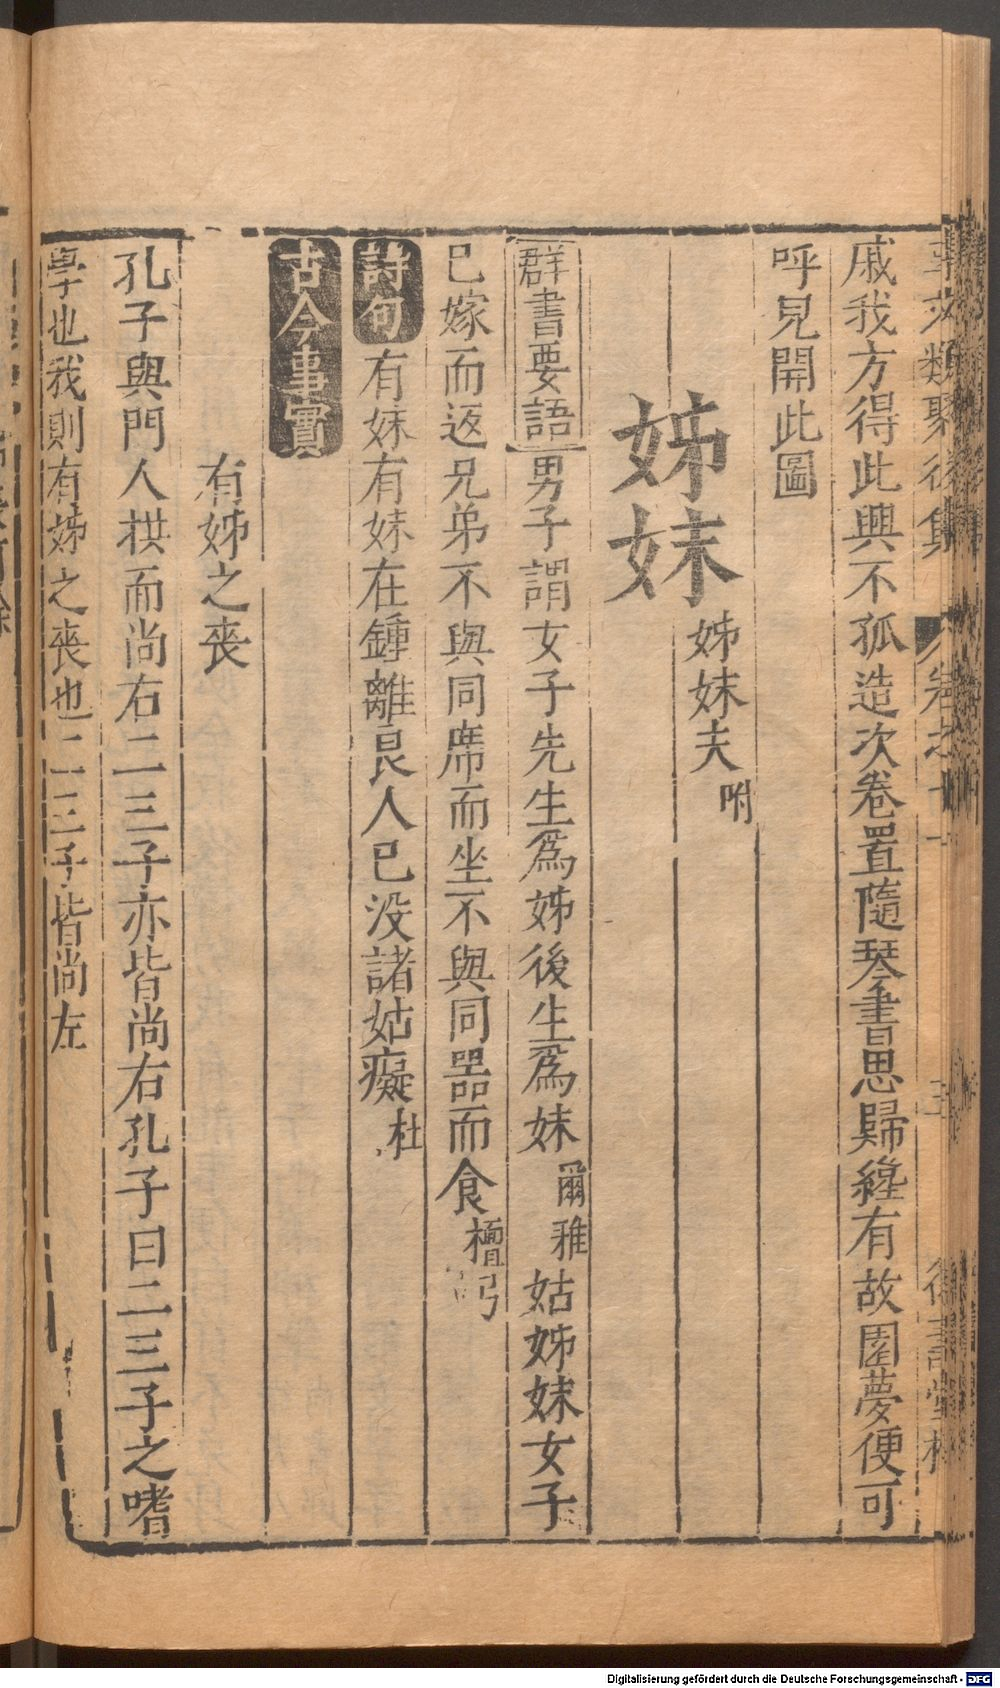 戚我方得此興不孤造次卷置隨琴書思歸縱有故園夢便可
呼見開此圖
姊妹姊妹夫附
群書要語男子謂女子先生爲姊後生爲妹爾雅姑姊妹女子
已嫁而返兄弟不與同席而坐不與同器而食檀弓
詩句有妹有妹在鍾離良人已没諸姑癡杜
古今事實
有姊之喪
孔子與門人拱而尚右二三子亦皆尚右孔子曰二三子之嗜
學也我則有姊之喪也二三子皆尚左
Digitalisierung gefördert durch die Deutsche Forschungsgemeinschaft - DFG